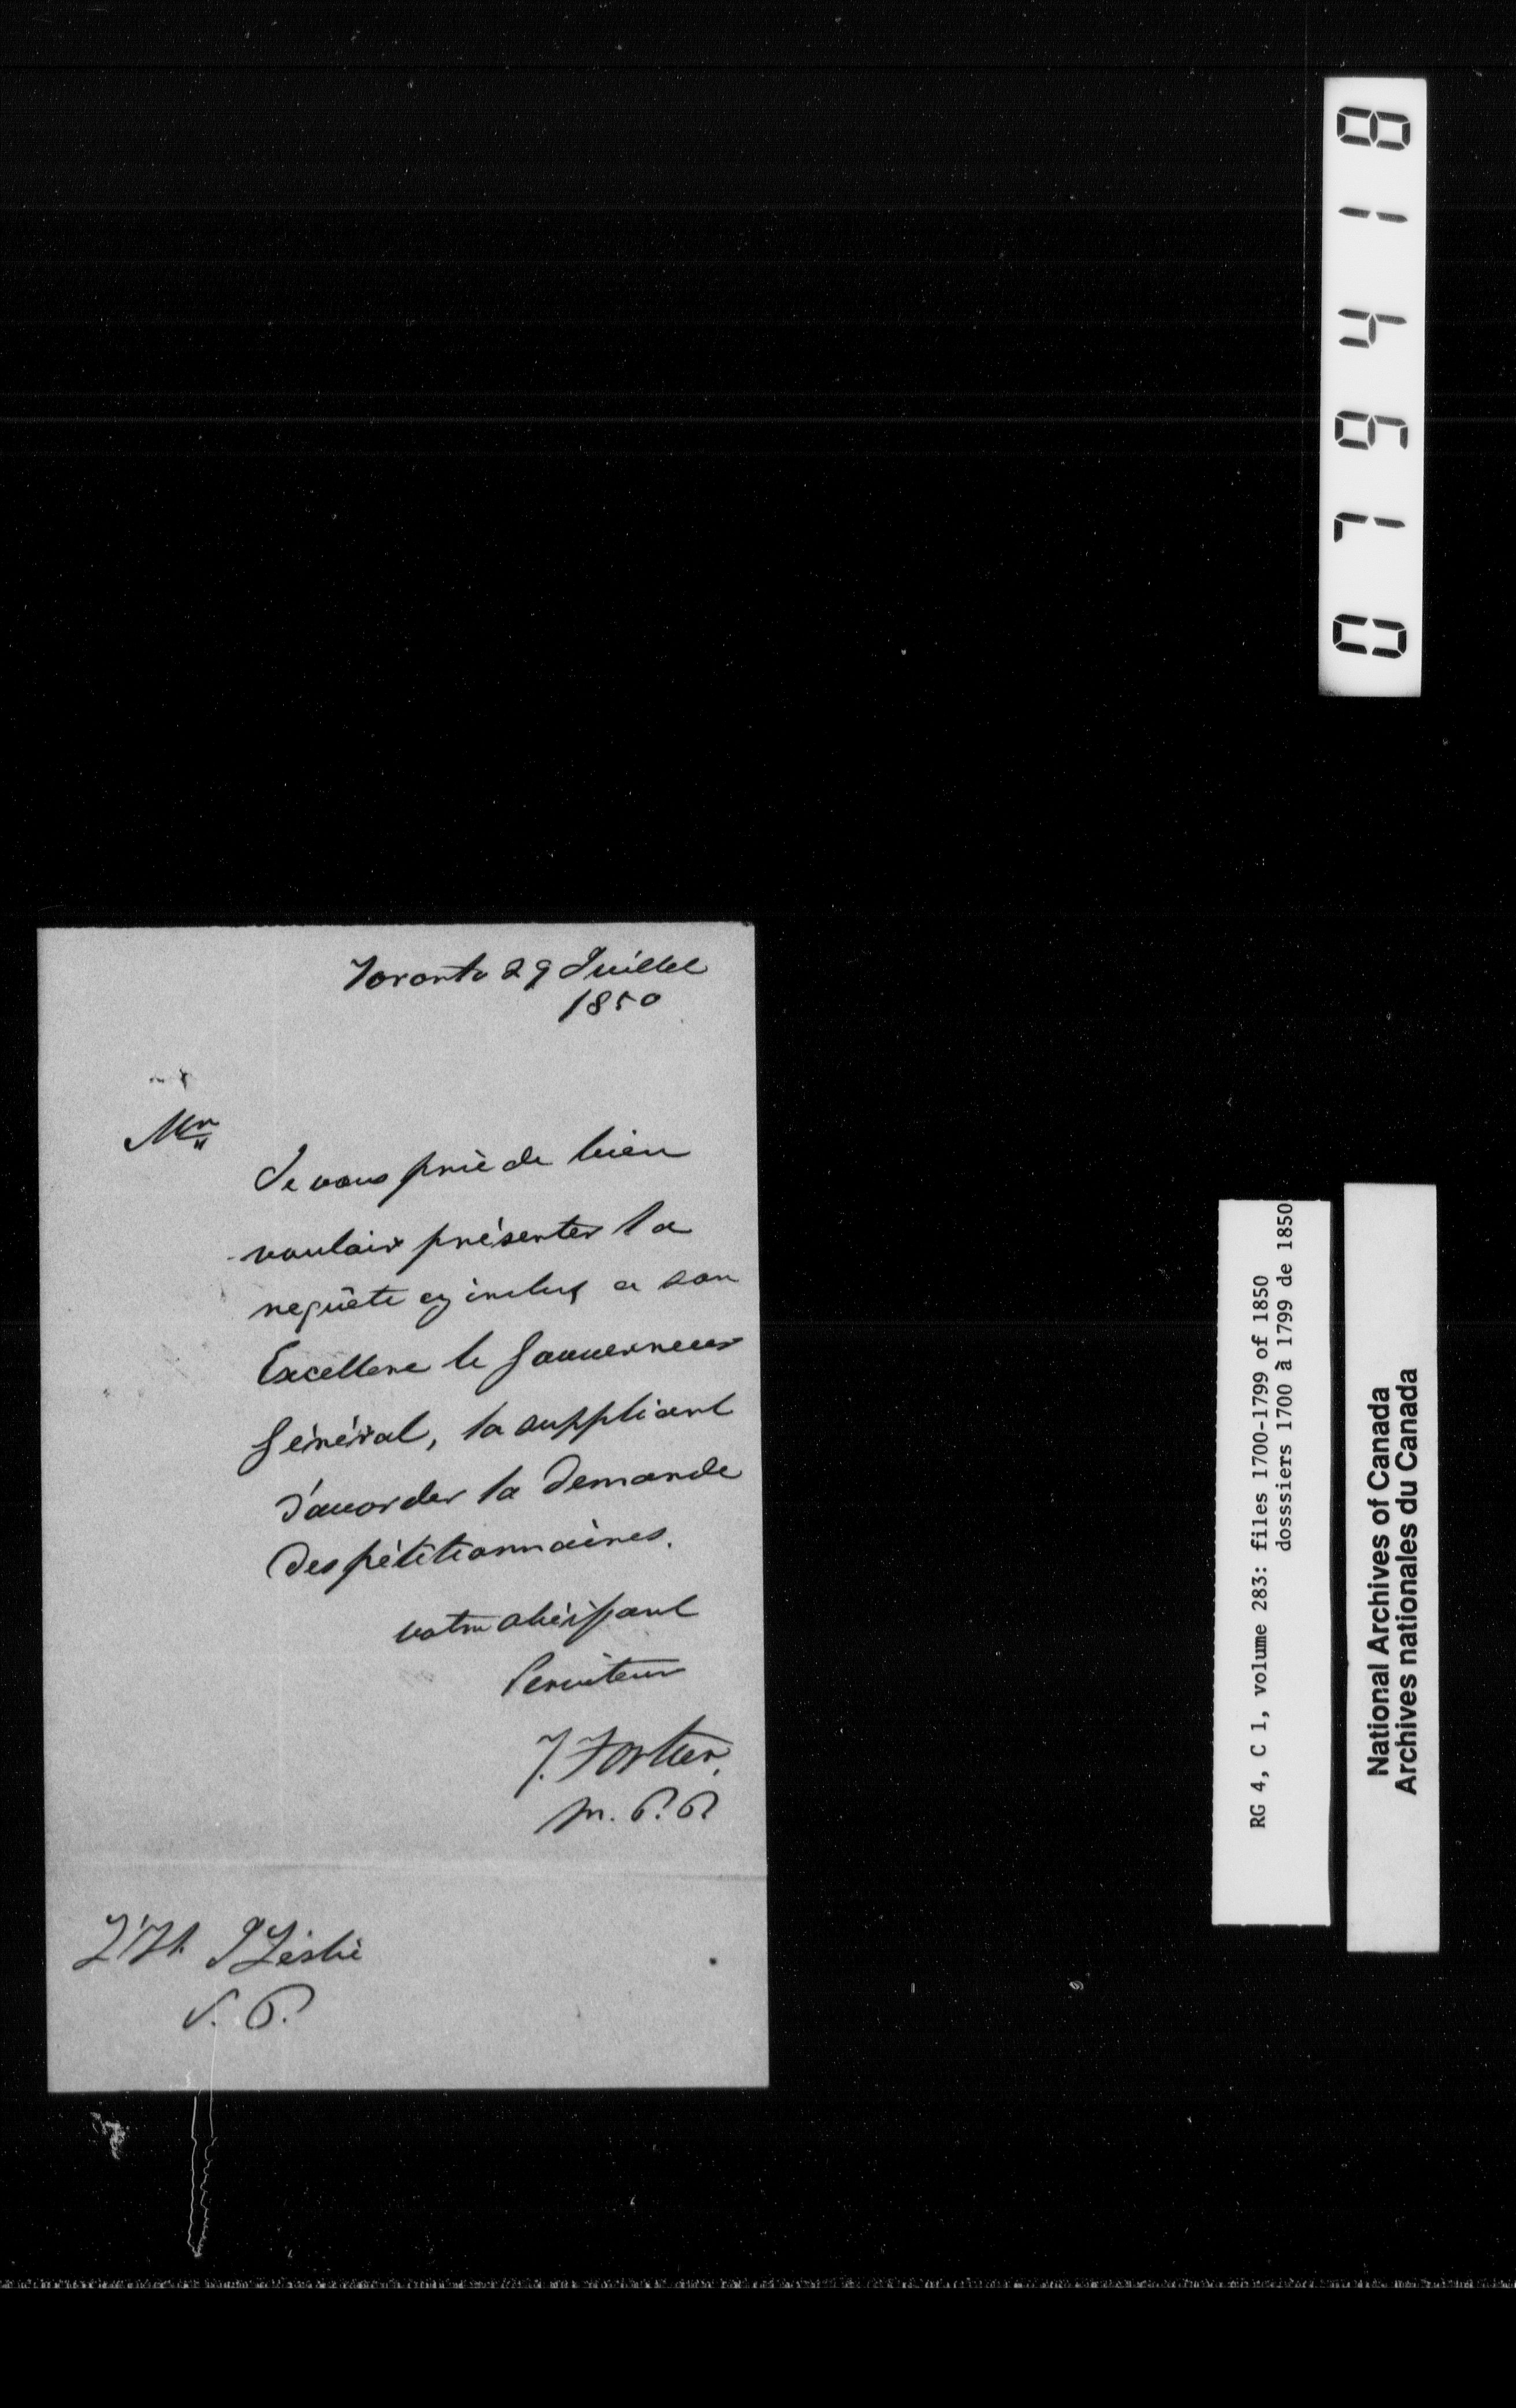 Toronto 29 Juillet
1850
Mr
Je vous prie de bien
vouloir présenter la
requête cy inclus a son
Excellence le Gouverneur
Général, la suppliant
d'accorder la demande
des pétitionnaires.
votre obéissant
Serviteur
T. Fortier.
m. P. P
L'H. J Leslie
S. P.
079418
RG 4, C 1, volume 283: files 1700-1799 of 1850
dosssiers 1700 à 1799 de 1850
National Archives of Canada
Archives nationales du Canada